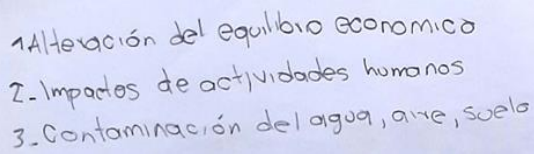 1 Alteración del equilibrio economico
2- Impactos de actividades humanos
3- Contaminación del agua, aire, suelo